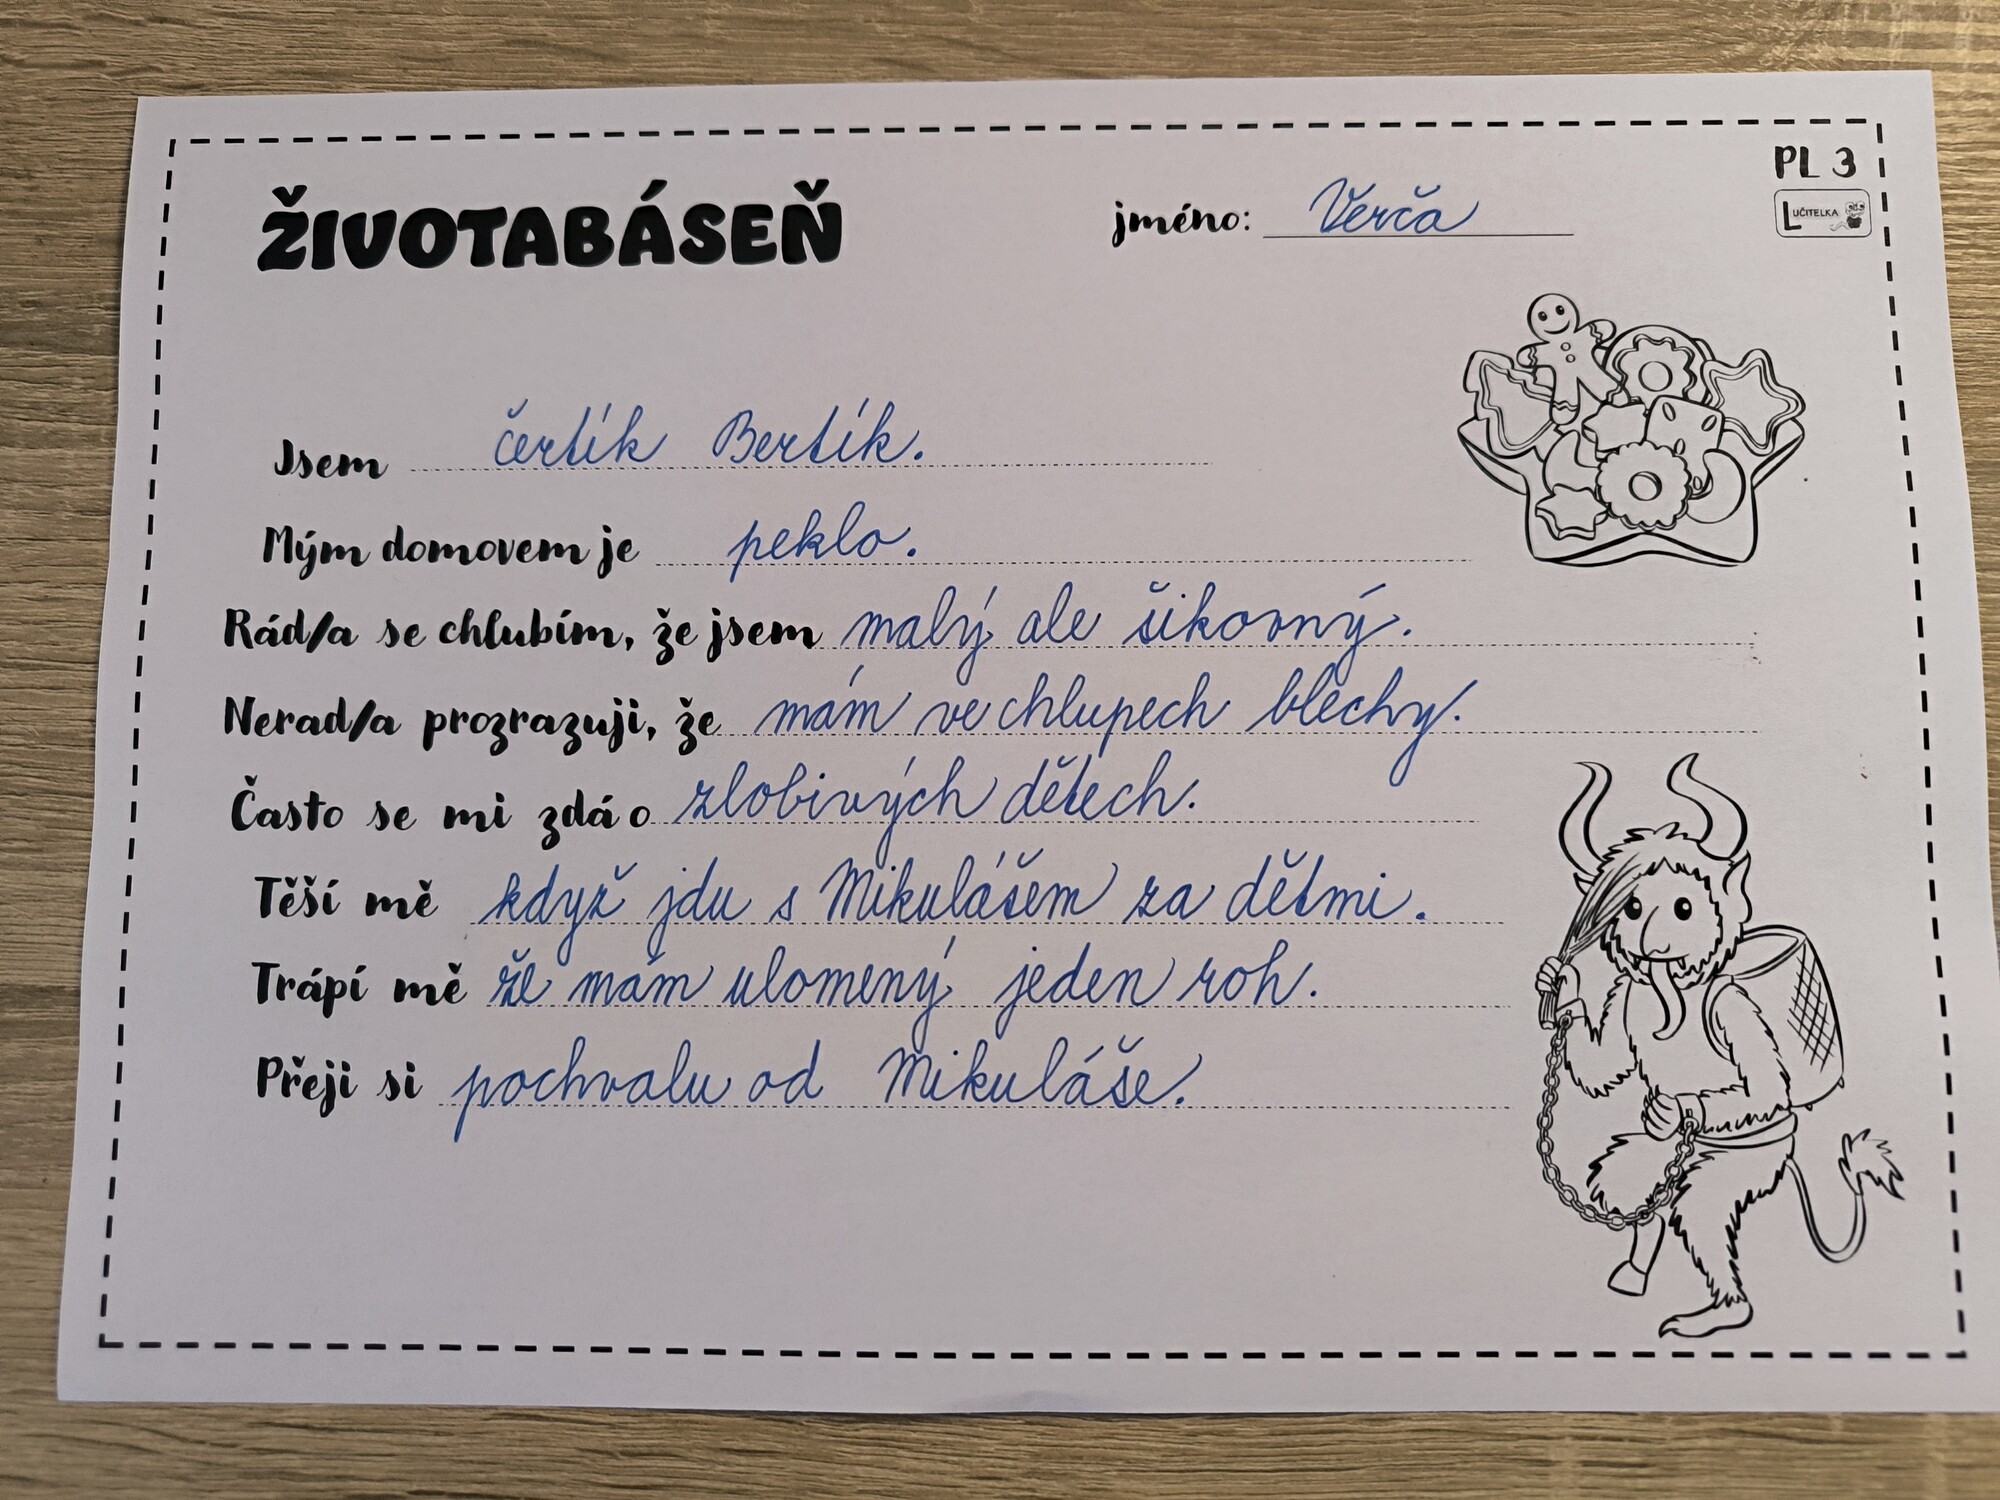 PL 3
ŽIVOTABÁSEŇ jméno: Verča
LUČITELKA
Jsem čertík Bertík.
Mým domovem je peklo.
Rád/a se chlubím, že jsem malý ale šikovný.
Nerad/a prozrazuji, že mám ve chlupech blechy.
Často se mi zdá o zlobivých dětech.
Těší mě když jdu s Mikulášem za dětmi.
Trápí mě že mám ulomený jeden roh.
Přeji si pochvalu od Mikuláše.